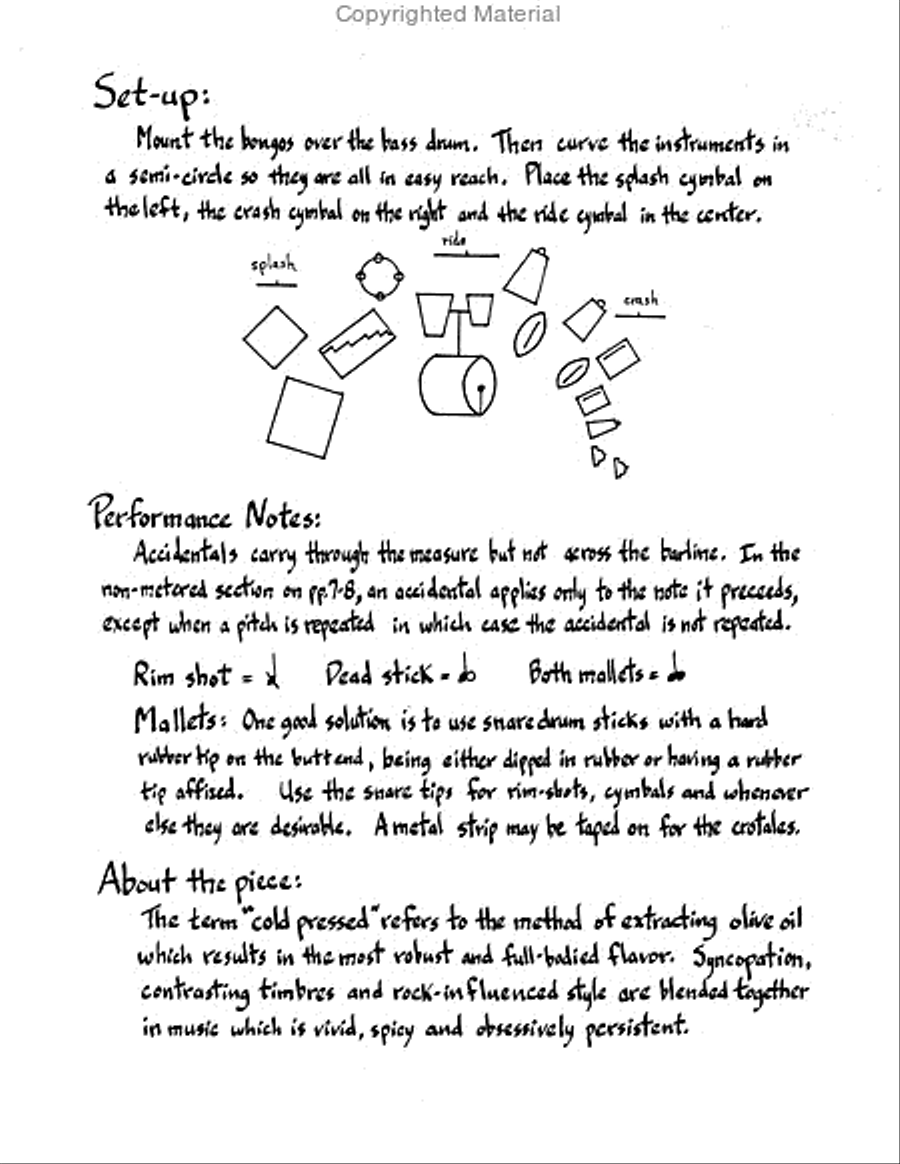 Copyrighted Material
Set-up:
Mount the bongos over the bass drum. Then curve the instruments in
a semi-circle so they are all in easy reach. Place the splash cymbal on
the left, the crash cymbal on the right and the ride cymbal in the center.
ride
splash
crash
Performance Notes:
Accidentals carry through the measure but not across the barline. In the
non-metered section on pp.7-8, an accidental applies only to the note it preceeds,
except when a pitch is repeated in which case the accidental is not repeated.
Rim shot = Dead stick = Both mallets =
Mallets: One good solution is to use snare drum sticks with a hard
rubber tip on the butt end, being either dipped in rubber or having a rubber
tip affixed. Use the snare tips for rim-shots, cymbals and whenever
else they are desirable. A metal strip may be taped on for the crotales.
About the piece:
The term "cold pressed" refers to the method of extracting olive oil
which results in the most robust and full-bodied flavor. Syncopation,
contrasting timbres and rock-influenced style are blended together
in music which is vivid, spicy and obsessively persistent.